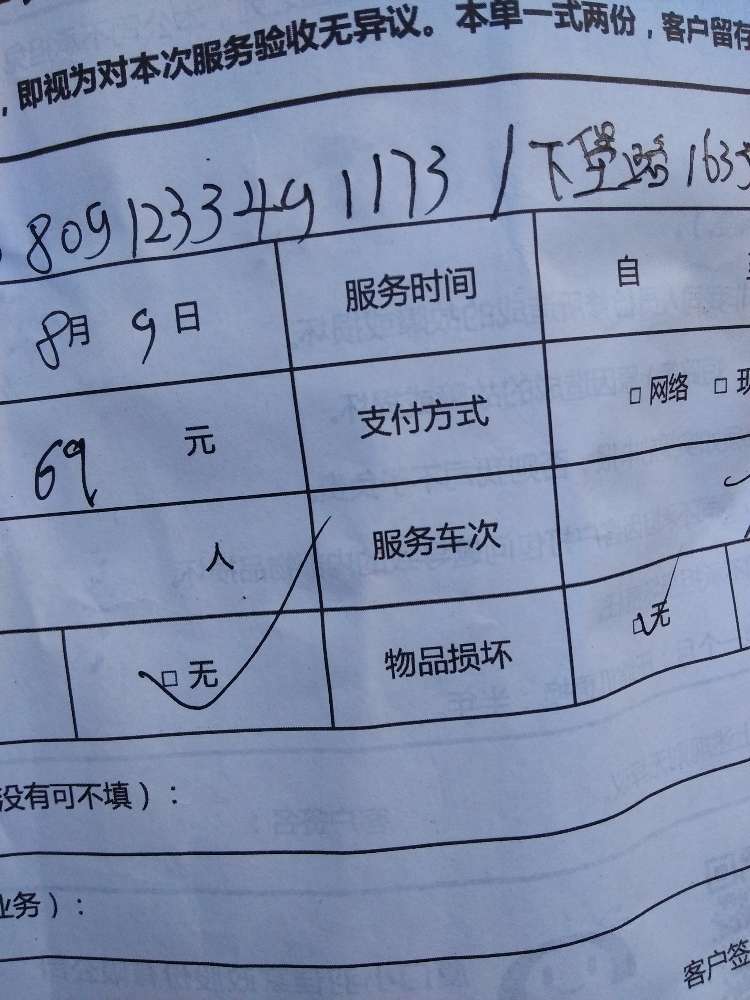 ，即视为对本次服务验收无异议。本单一式两份，客户留存
8091233491173 / 下堡路 1635
8月 9日 服务时间 自
69 元 支付方式 □ 网络 □ 现
人 服务车次
□ 无 物品损坏 □ 无
没有可不填）：
业务）：
客户签